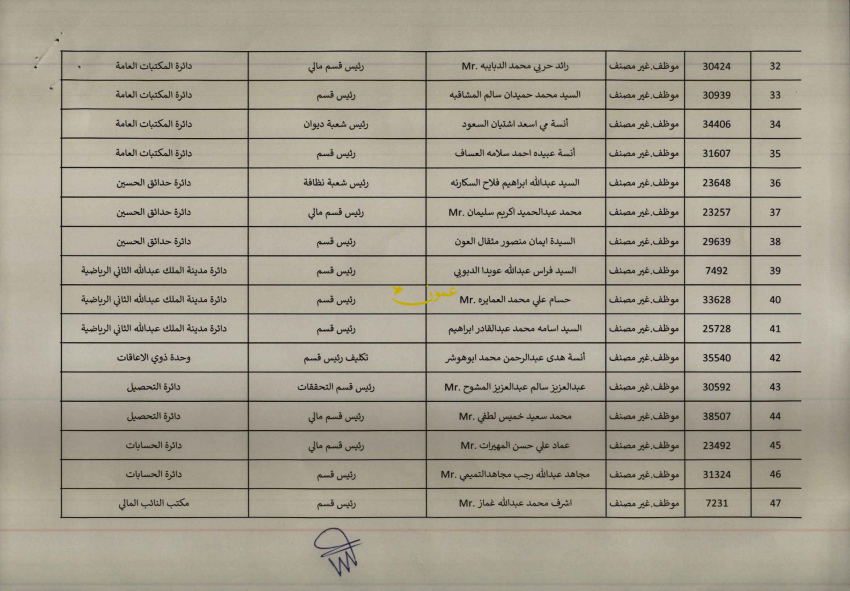 32 30424 موظف.غير مصنف رائد حربي محمد الدبايبه .Mr رئيس قسم مالي دائرة المكتبات العامة
33 30939 موظف.غير مصنف السيد محمد حميدان سالم المشاقبه رئيس قسم دائرة المكتبات العامة
34 34406 موظف.غير مصنف أنسة مي اسعد اشتيان السعود رئيس شعبة ديوان دائرة المكتبات العامة
35 31607 موظف.غير مصنف أنسة عبيده احمد سلامه العساف رئيس قسم دائرة المكتبات العامة
36 23648 موظف.غير مصنف السيد عبدالله ابراهيم فلاح السكارنه رئيس شعبة نظافة دائرة حدائق الحسين
37 23257 موظف.غير مصنف محمد عبدالحميد اكريم سليمان .Mr رئيس قسم مالي دائرة حدائق الحسين
38 29639 موظف.غير مصنف السيدة ايمان منصور مثقال العون رئيس قسم دائرة حدائق الحسين
39 7492 موظف.غير مصنف السيد فراس عبدالله عويدا الدبوبي رئيس قسم دائرة مدينة الملك عبدالله الثاني الرياضية
40 33628 موظف.غير مصنف حسام علي محمد العمايره .Mr رئيس قسم دائرة مدينة الملك عبدالله الثاني الرياضية
عمون
41 25728 موظف.غير مصنف السيد اسامه محمد عبدالقادر ابراهيم رئيس قسم دائرة مدينة الملك عبدالله الثاني الرياضية
42 35540 موظف.غير مصنف أنسة هدى عبدالرحمن محمد ابوهوشر تكليف رئيس قسم وحدة ذوي الاعاقات
43 30592 موظف.غير مصنف عبدالعزيز سالم عبدالعزيز المشوح .Mr رئيس قسم التحققات دائرة التحصيل
44 38507 موظف.غير مصنف محمد سعيد خميس لطفي .Mr رئيس قسم مالي دائرة التحصيل
45 23492 موظف.غير مصنف عماد علي حسن المهيرات .Mr رئيس قسم مالي دائرة الحسابات
46 31324 موظف.غير مصنف مجاهد عبدالله رجب مجاهدالتميمي .Mr رئيس قسم دائرة الحسابات
47 7231 موظف.غير مصنف اشرف محمد عبدالله غماز .Mr رئيس قسم مكتب النائب المالي